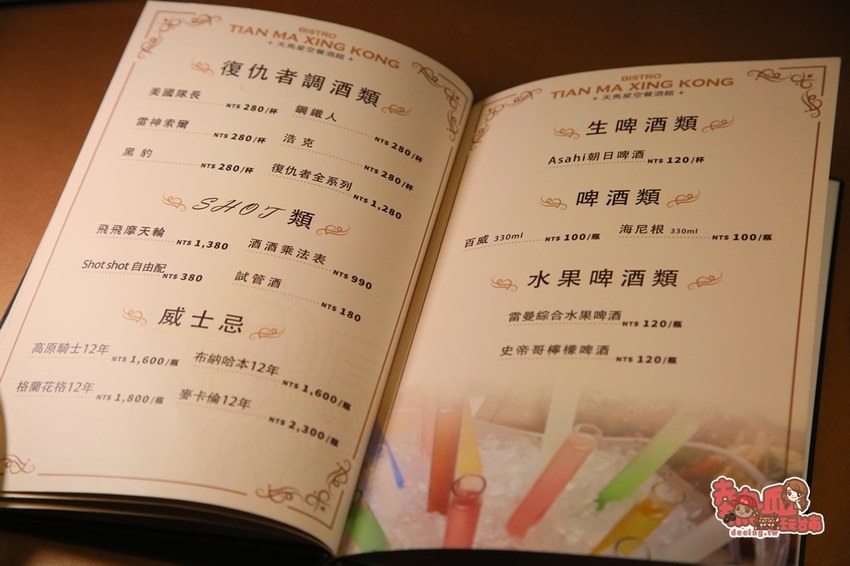 BISTRO
TIAN MA XING KONG
天馬星空餐酒館
復仇者調酒類
美國隊長 NT$ 280/杯 鋼鐵人 NT$ 280/杯
雷神索爾 NT$ 280/杯 浩克 NT$ 280/杯
黑豹 NT$ 280/杯 復仇者全系列 NT$ 1,280
SHOT 類
飛飛摩天輪 NT$ 1,380 酒酒乘法表 NT$ 990
Shot shot 自由配 NT$ 380 試管酒 NT$ 180
威士忌
高原騎士12年 NT$ 1,600/瓶 布納哈本12年 NT$ 1,600/瓶
格蘭花格12年 NT$ 1,800/瓶 麥卡倫12年 NT$ 2,300/瓶
BISTRO
TIAN MA XING KONG
天馬星空餐酒館
生啤酒類
Asahi朝日啤酒 NT$ 120/杯
啤酒類
百威 330ml NT$ 100/瓶 海尼根 330ml NT$ 100/瓶
水果啤酒類
雷曼綜合水果啤酒 NT$ 120/瓶
史帝哥檸檬啤酒 NT$ 120/瓶
熱血玩台南
decing.tw